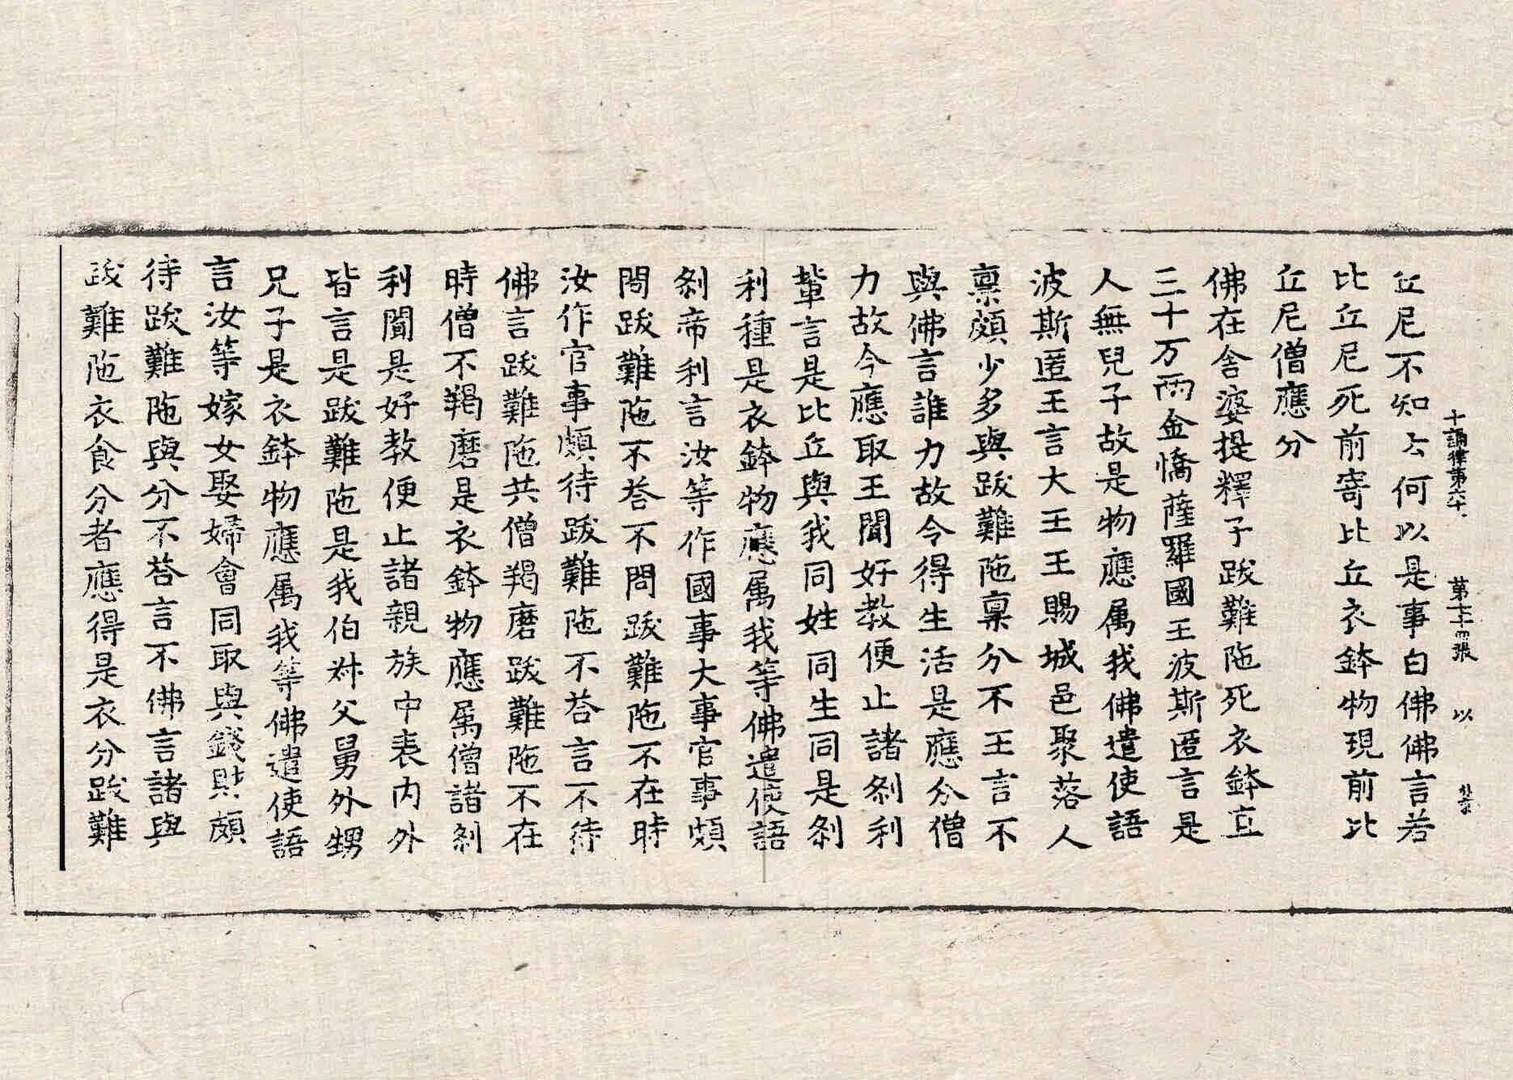 十誦律第六十 第二十四張 以
丘尼不知云何以是事白佛佛言若
比丘尼死前寄比丘衣鉢物現前比
丘尼僧應分
佛在舍婆提釋子跋難陁死衣鉢直
三十万兩金憍薩羅國王波斯匿言是
人無兒子故是物應属我佛遣使語
波斯匿王言大王王賜城邑聚落人
禀頗少多與跋難陁禀分不王言不
與佛言誰力故令得生活是應分僧
力故今應取王聞好教便止諸刹利
輩言是比丘與我同姓同生同是刹
利種是衣鉢物應属我等佛遣使語
刹帝利言汝等作國事大事官事頗
問跋難陁不荅不問跋難陁不在時
汝作官事頗待跋難陁不荅言不待
佛言跋難陁共僧羯磨跋難陁不在
時僧不羯磨是衣鉢物應属僧諸刹
利聞是好教便止諸親族中表内外
皆言是跋難陁是我伯叔父舅外甥
兄子是衣鉢物應属我等佛遣使語
言汝等嫁女娶婦會同取與錢財頗
待跋難陁與分不荅言不佛言諸與
跋難陁衣食分者應得是衣分跋難